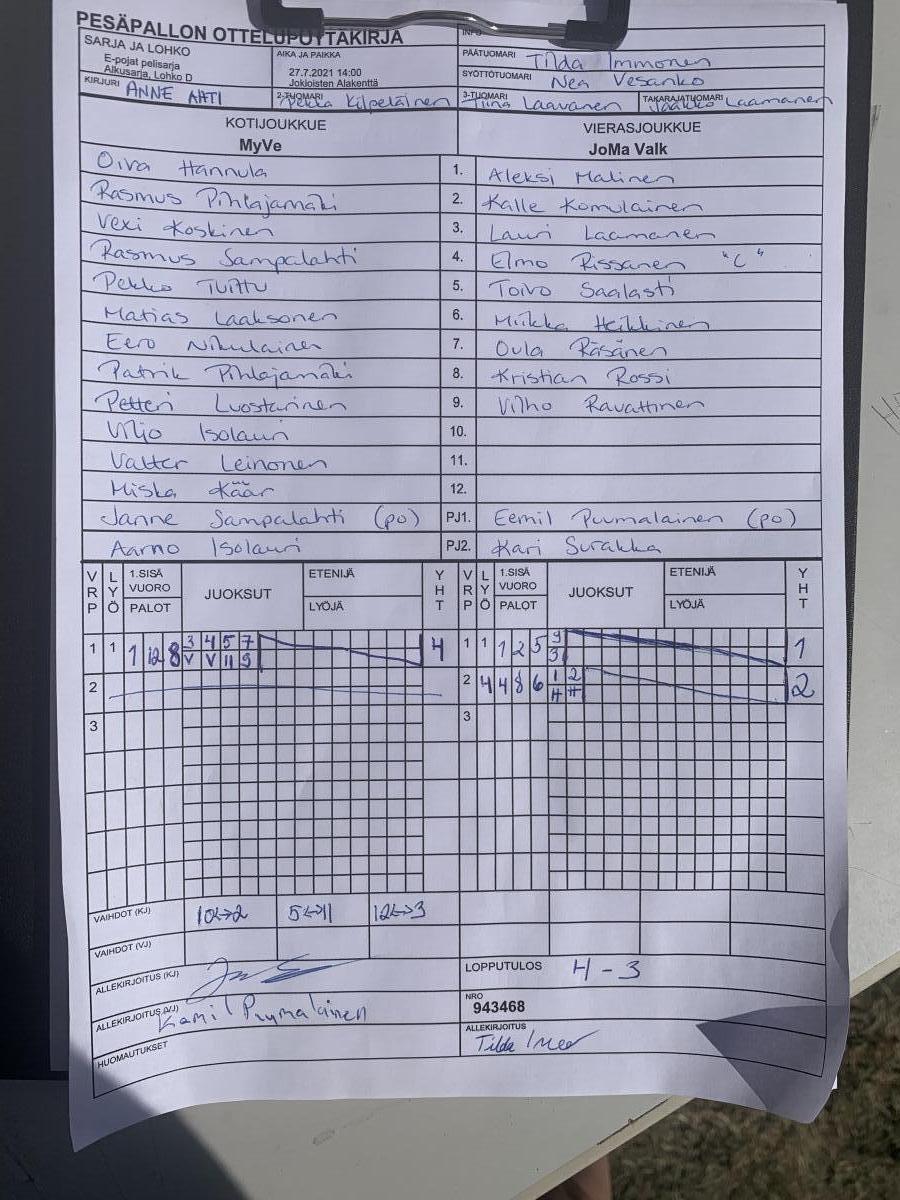 PESÄPALLON OTTELUPÖYTÄKIRJA
INFO
SARJA JA LOHKO
E-pojat pelisarja
Alkusarja, Lohko D
AIKA JA PAIKKA
27.7.2021 14:00
Jokioisten Alakenttä
PÄÄTUOMARI Tilda Immonen
SYÖTTÖTUOMARI Nea Vesanko
KIRJURI ANNE AHTI
2-TUOMARI Pekka Kilpeläinen
3-TUOMARI Tiina Laavanen
TAKARAJATUOMARI Jaakko Laamanen
KOTIJOUKKUE
MyVe
VIERASJOUKKUE
JoMa Valk
Oiva Hannula 1. Aleksi Malinen
Rasmus Pihlajamäki 2. Kalle Komulainen
Vexi Koskinen 3. Lauri Laamanen
Rasmus Sampalahti 4. Elmo Rissanen "C"
Pekko Tuittu 5. Toivo Saalasti
Matias Laaksonen 6. Miikka Heikkinen
Eero Nikulainen 7. Oula Räsänen
Patrik Pihlajamäki 8. Kristian Rossi
Petteri Luostarinen 9. Vilho Ravattinen
Viljo Isolauri 10.
Valtter Leinonen 11.
Miska Käär 12.
Janne Sampalahti (po) PJ1. Eemil Puumalainen (po)
Aarno Isolauri PJ2. Kari Surakka
VRP LYÖ 1.SISÄ VUORO PALOT JUOKSUT ETENIJÄ LYÖJÄ YHT VRP LYÖ 1.SISÄ VUORO PALOT JUOKSUT ETENIJÄ LYÖJÄ YHT
1 1 1 12 8 3 4 5 7 4 1 1 1 2 5 9 1
V V 11 9 3
2 2 4 4 8 6 1 2 2
4 4
3 3
VAIHDOT (KJ) 10<->2 5<->11 12<->3
VAIHDOT (VJ)
ALLEKIRJOITUS (KJ)
LOPPUTULOS 4 - 3
ALLEKIRJOITUS (VJ) Puumalainen
NRO
943468
HUOMAUTUKSET
ALLEKIRJOITUS
Tilda